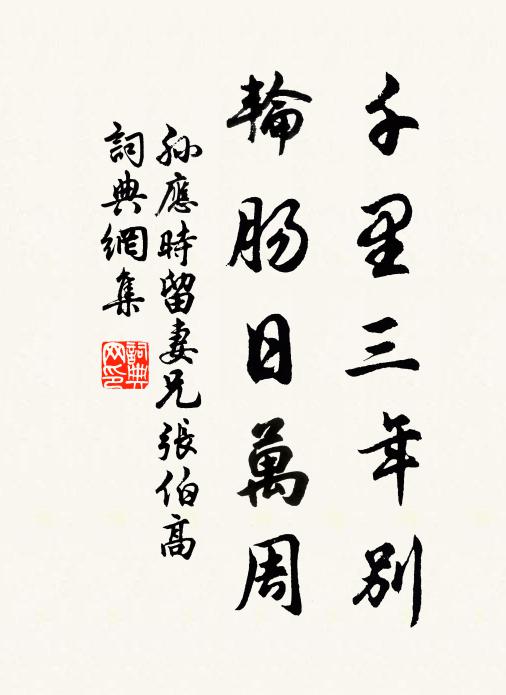 千里三年别
輪肠日萬周
孫應時留妻兄張伯高
詞典網集
詞典网印